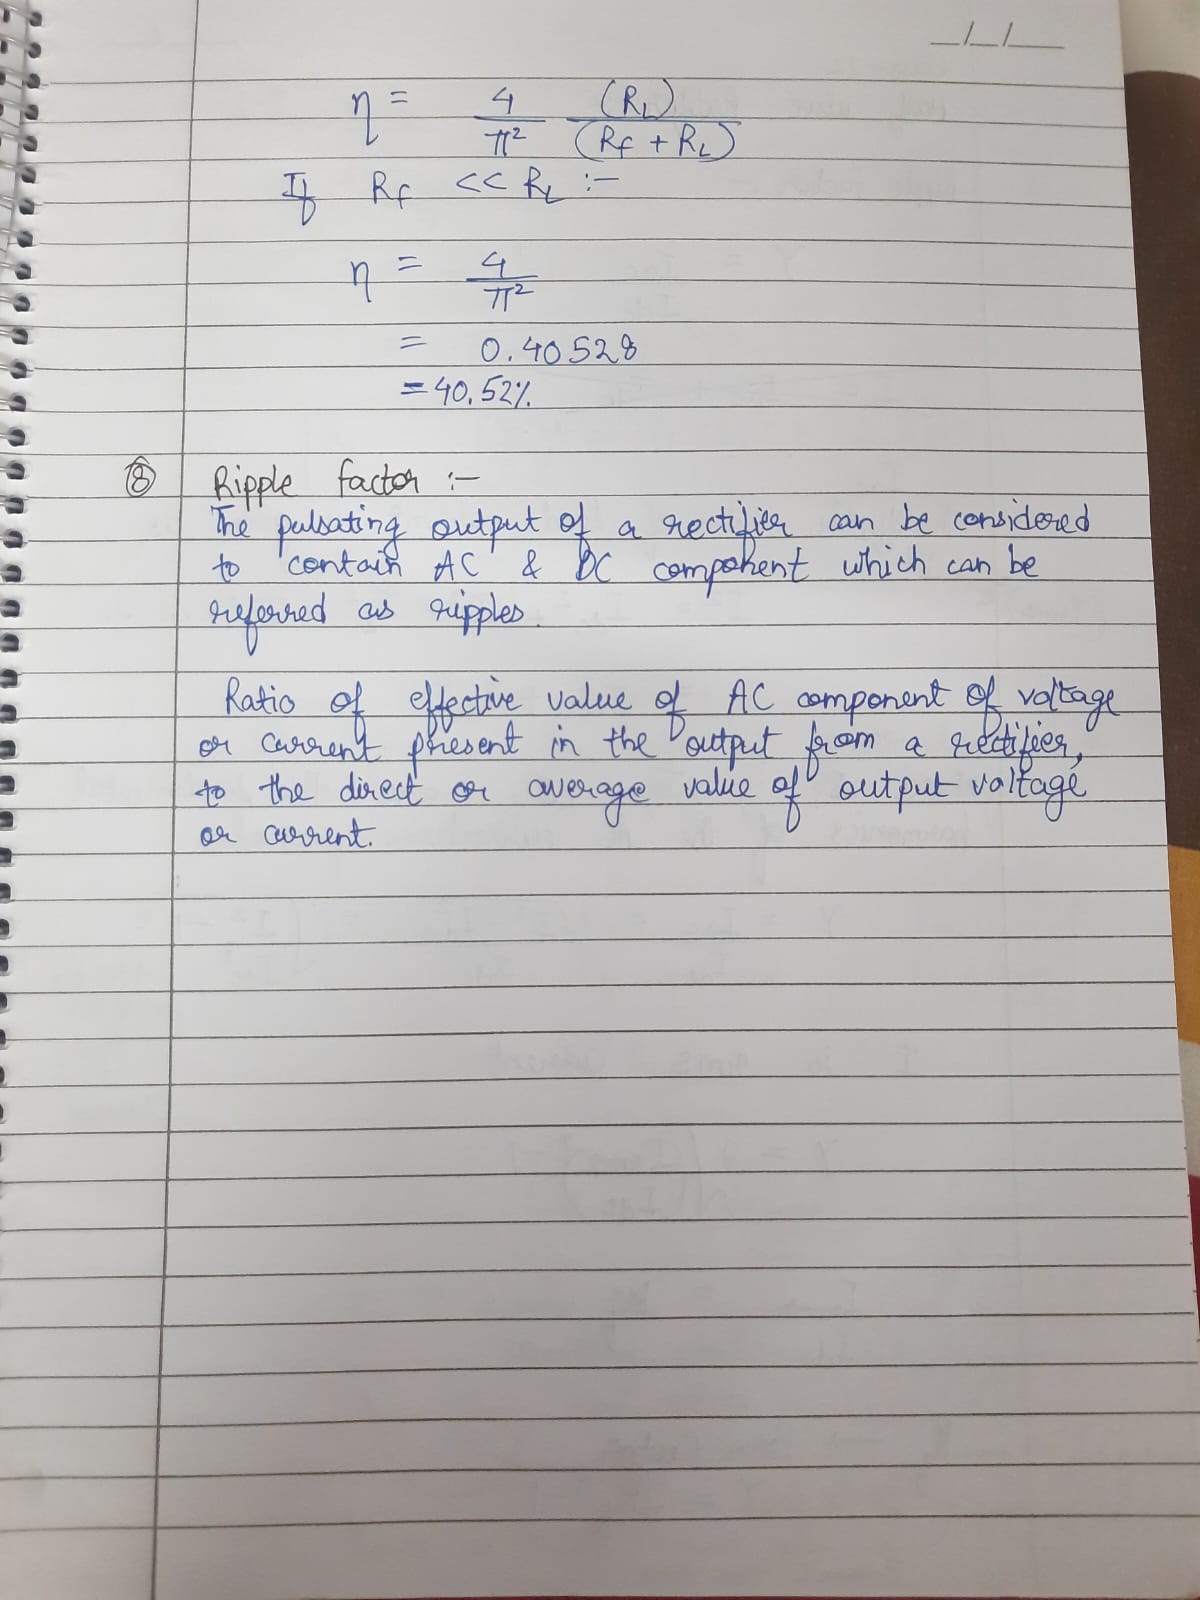 __/__/____
η = 4/π² (RL)/(Rf + RL)
If Rf << RL :-
η = 4/π²
= 0.40528
= 40.52%
⑧ Ripple factor :-
The pulsating output of a rectifier can be considered
to contain AC & DC component which can be
referred as ripples.
Ratio of effective value of AC component of voltage
or current present in the output from a rectifier,
to the direct or average value of output voltage
or current.